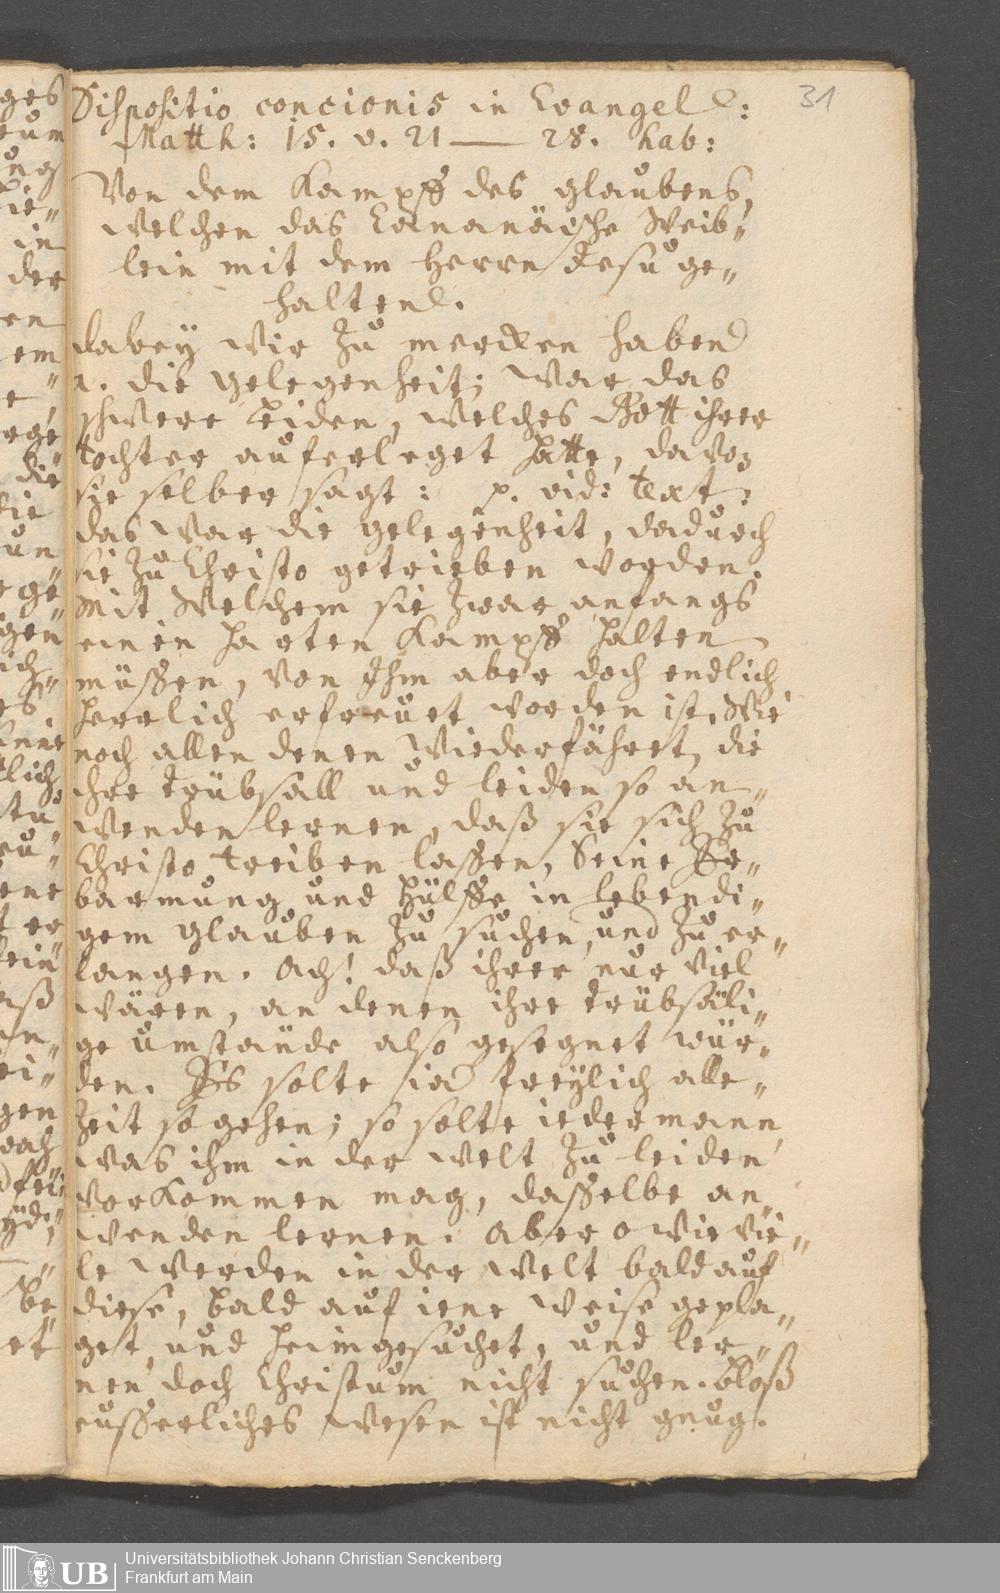 31
Dispositio concionis in Evangel:
Matth: 15. v. 21 — 28. hab:
Von dem Kampff des glaubens,
welchen das Cananäische Weib„
lein mit dem Herrn Jesu ge„
halten.
dabey wir zu mercken haben
1. die gelegenheit; war das
schwere Leiden, welches Gott ihrer
tochter auferleget hatte, davon
sie selber sagt: p. vid: text:
das war die gelegenheit, dadurch
sie zu Christo getrieben worden.
Mit Welchem sie zwar anfangs
einen harten Kampff halten
müssen, von Ihm aber doch endlich
herrlich erfreuet worden ist. Wie
noch allen denen wiederfähret, die
ihre trübsall und leiden so an„
wenden lernen, daß sie sich zu
Christo treiben lassen, Seine Er„
barmung und hülffe in lebendi„
gem glauben zu suchen, und zu er„
langen. Ach! daß ihrer nur viel
wären, an denen ihre trübsäli„
ge umstände also gesegnet wür„
den. Es solte ja freylich alle„
zeit so gehen; so solte iedermann,
was ihm in der welt zu leiden
vorkommen mag, dasselbe an„
wenden lernen. Aber o wie vie„
le werden in der welt bald auf
diese, bald auf iene weise gepla„
get, und heimgesuchet, und ler„
nen doch Christum nicht suchen. bloß
eusserliches wesen ist nicht gnug.
UB
Universitätsbibliothek Johann Christian Senckenberg
Frankfurt am Main